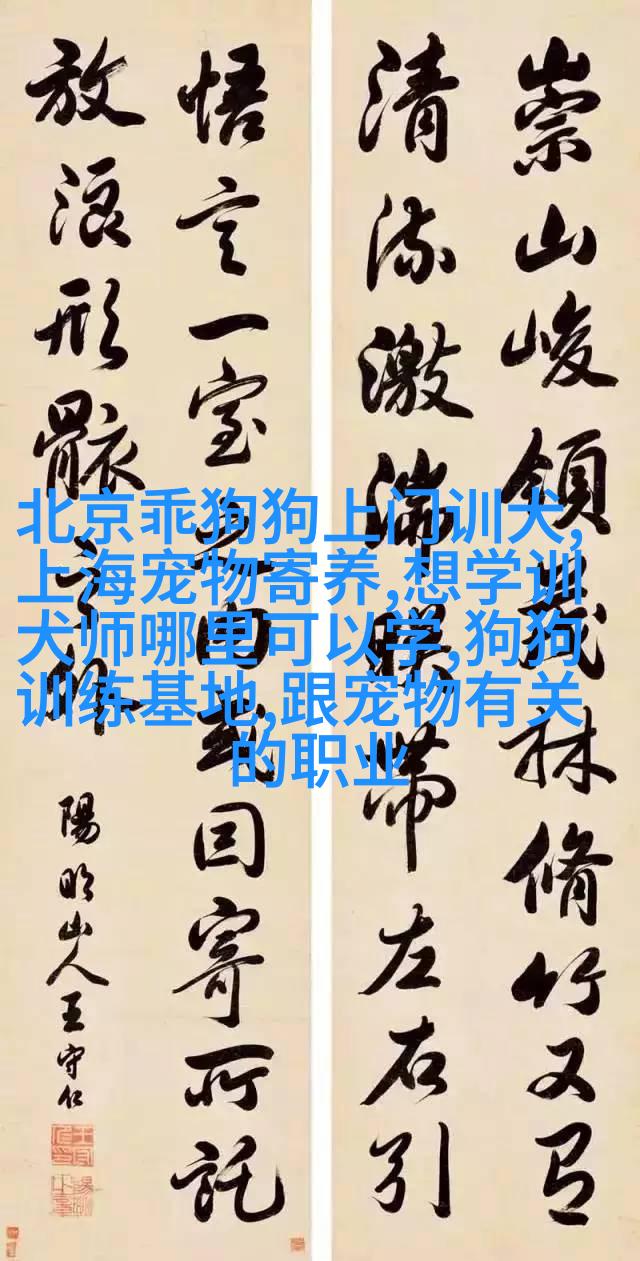 崇山峻領茂林脩竹又有
清流激湍暎帶左右引
悟言一室之内或因寄所託
放浪形骸之外
陽明山人王守仁
北京乖狗狗上门训犬,
上海宠物寄养,想学训
犬师哪里可以学,狗狗
训练基地,跟宠物有关
的职业